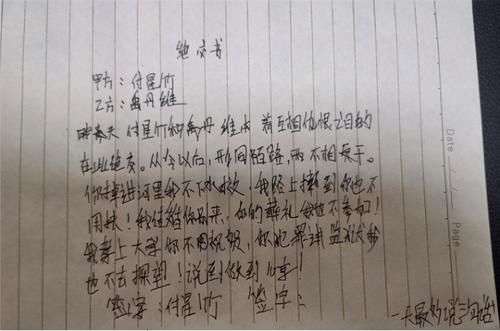 绝交书
甲方：付星竹
乙方：禹丹维
昨天 付星竹和禹丹维本着互相仇恨之目的
在此绝交。从今以后，形同陌路，两不相关于。
你掉进河里我不下水救，我路上撞到你也不
用扶！我结婚你别来，你的葬礼我也不参加！
我考上大学你不用祝贺，你犯罪进监狱我
也不去探望！说到做到 以字！
签字：付星竹 签字：
Date
Page